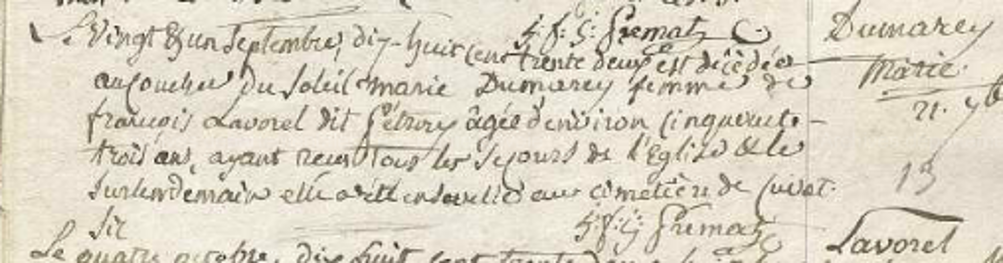 S. f. G. Gremat
Dumarey
Marie.
21. 7b
13
Le vingt & un Septembre, dix-huit cent trente deux est décédée
au coucher du soleil Marie Dumarey femme de
françois Lavorel dit agée d'environ Cinquante-
trois ans, ayant recu tous les secours de l'Eglise & le
surlendemain elle a été ensevelie au cimetière de
Sit
S. f. G. Gremat
Lavorel
Le quatre octobre, dix huit cent trente